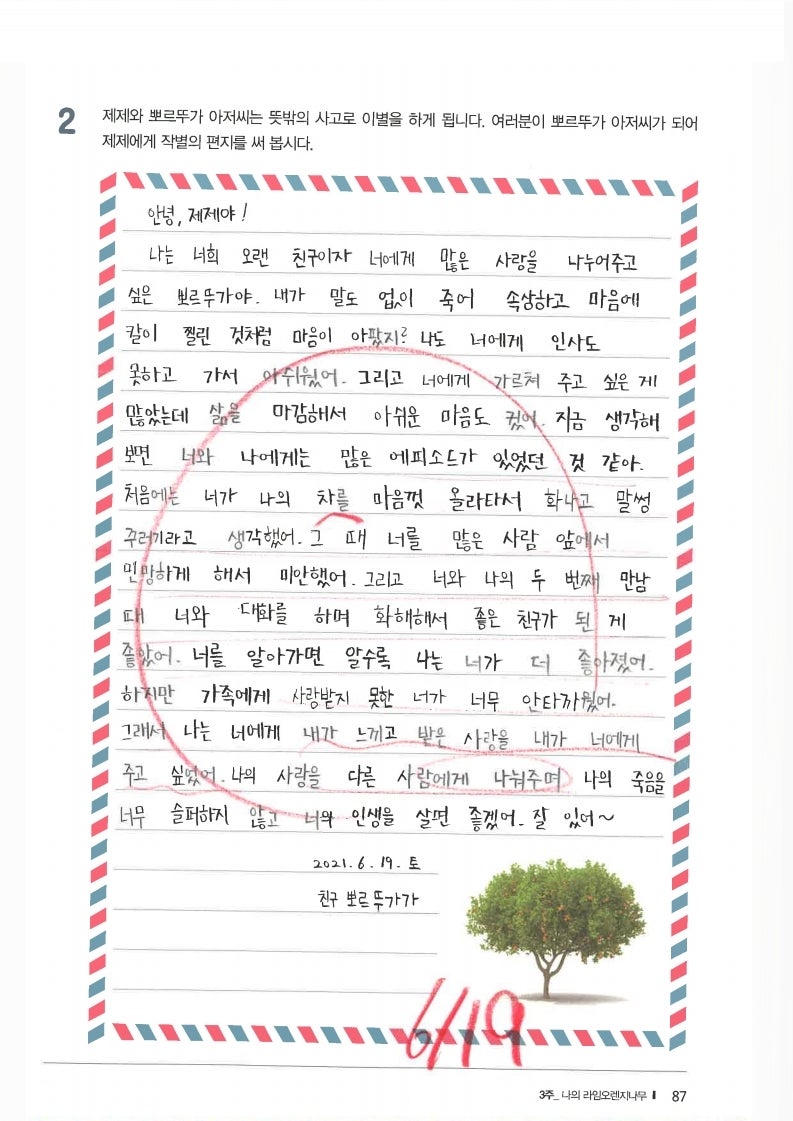 2 제제와 뽀르뚜가 아저씨는 뜻밖의 사고로 이별을 하게 됩니다. 여러분이 뽀르뚜가 아저씨가 되어
제제에게 작별의 편지를 써 봅시다.
안녕, 제제야!
나는 너희 오랜 친구이자 너에게 많은 사랑을 나누어주고
싶은 뽀르뚜가야. 내가 말도 없이 죽어 속상하고 마음에
칼이 찔린 것처럼 마음이 아팠지? 나도 너에게 인사도
못하고 가서 아쉬웠어. 그리고 너에게 가르쳐 주고 싶은 게
많았는데 삶을 마감해서 아쉬운 마음도 컸어. 지금 생각해
보면 너와 나에게는 많은 에피소드가 있었던 것 같아.
처음에는 너가 나의 차를 마음껏 올라타서 화나고 말썽
꾸러기라고 생각했어. 그 때 너를 많은 사람 앞에서
민망하게 해서 미안했어. 그리고 너와 나의 두 번째 만남
때 너와 대화를 하며 화해해서 좋은 친구가 된 게
좋았어. 너를 알아가면 알수록 나는 너가 더 좋아졌어.
하지만 가족에게 사랑받지 못한 너가 너무 안타까웠어.
그래서 나는 너에게 내가 느끼고 받은 사랑을 내가 너에게
주고 싶었어. 나의 사랑을 다른 사람에게 나눠주며 나의 죽음을
너무 슬퍼하지 않고 너의 인생을 살면 좋겠어. 잘 있어~
2021. 6. 19. 토
친구 뽀르뚜가가
6/19
3주_ 나의 라임오렌지나무 87